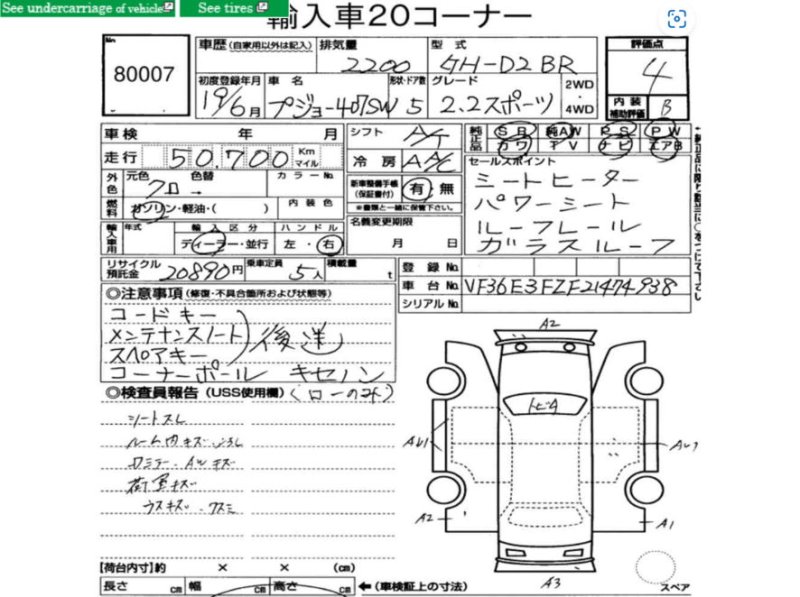 See undercarriage of vehicle
See tires
輸入車20コーナー
No
80007
車歴(自家用以外は記入)
排気量
2200
型式
GH-D2BR
評価点
4
初度登録年月
19/6月
車名
プジョー407SW
形状・ドア数
5
グレード
2.2スポーツ
2WD
・
4WD
内装
補助評価
B
車検 年 月
シフト
A/T
純正品
SR 純AW PS PW
カワ TV ナビ エアB
走行
50,700
Km
マイル
冷房
A/C
セールスポイント
シートヒーター
パワーシート
ルーフレール
ガラスルーフ
外色
元色
色替
カラーNo
クロ→
新車整備手帳
(保証書付)
有・無
※書類と一緒に保管下さい。
燃料
ガソリン・軽油・( )
内装色
名義変更期限
月 日
輸入車用
年式
輸入区分
ハンドル
ディーラー・並行
左・右
リサイクル
預託金
20890円
乗車定員
5人
積載量
t
登録No.
車台No.
VF36E3FZF21474938
シリアルNo.
◎注意事項(修復・不具合箇所および状態等)
コードキー
メンテナンスノート
スペアキー
後送
コーナーポール キセノン
(ローのみ)
◎検査員報告(USS使用欄)
シートスレ
ルーム内キズ・汚れ
AWキズ
ウスキズ
A2
トビA
AU1
A2
A1
A3
スペア
【荷台内寸】約 × × (cm)
長さ cm 幅 cm 高さ cm ←(車検証上の寸法)